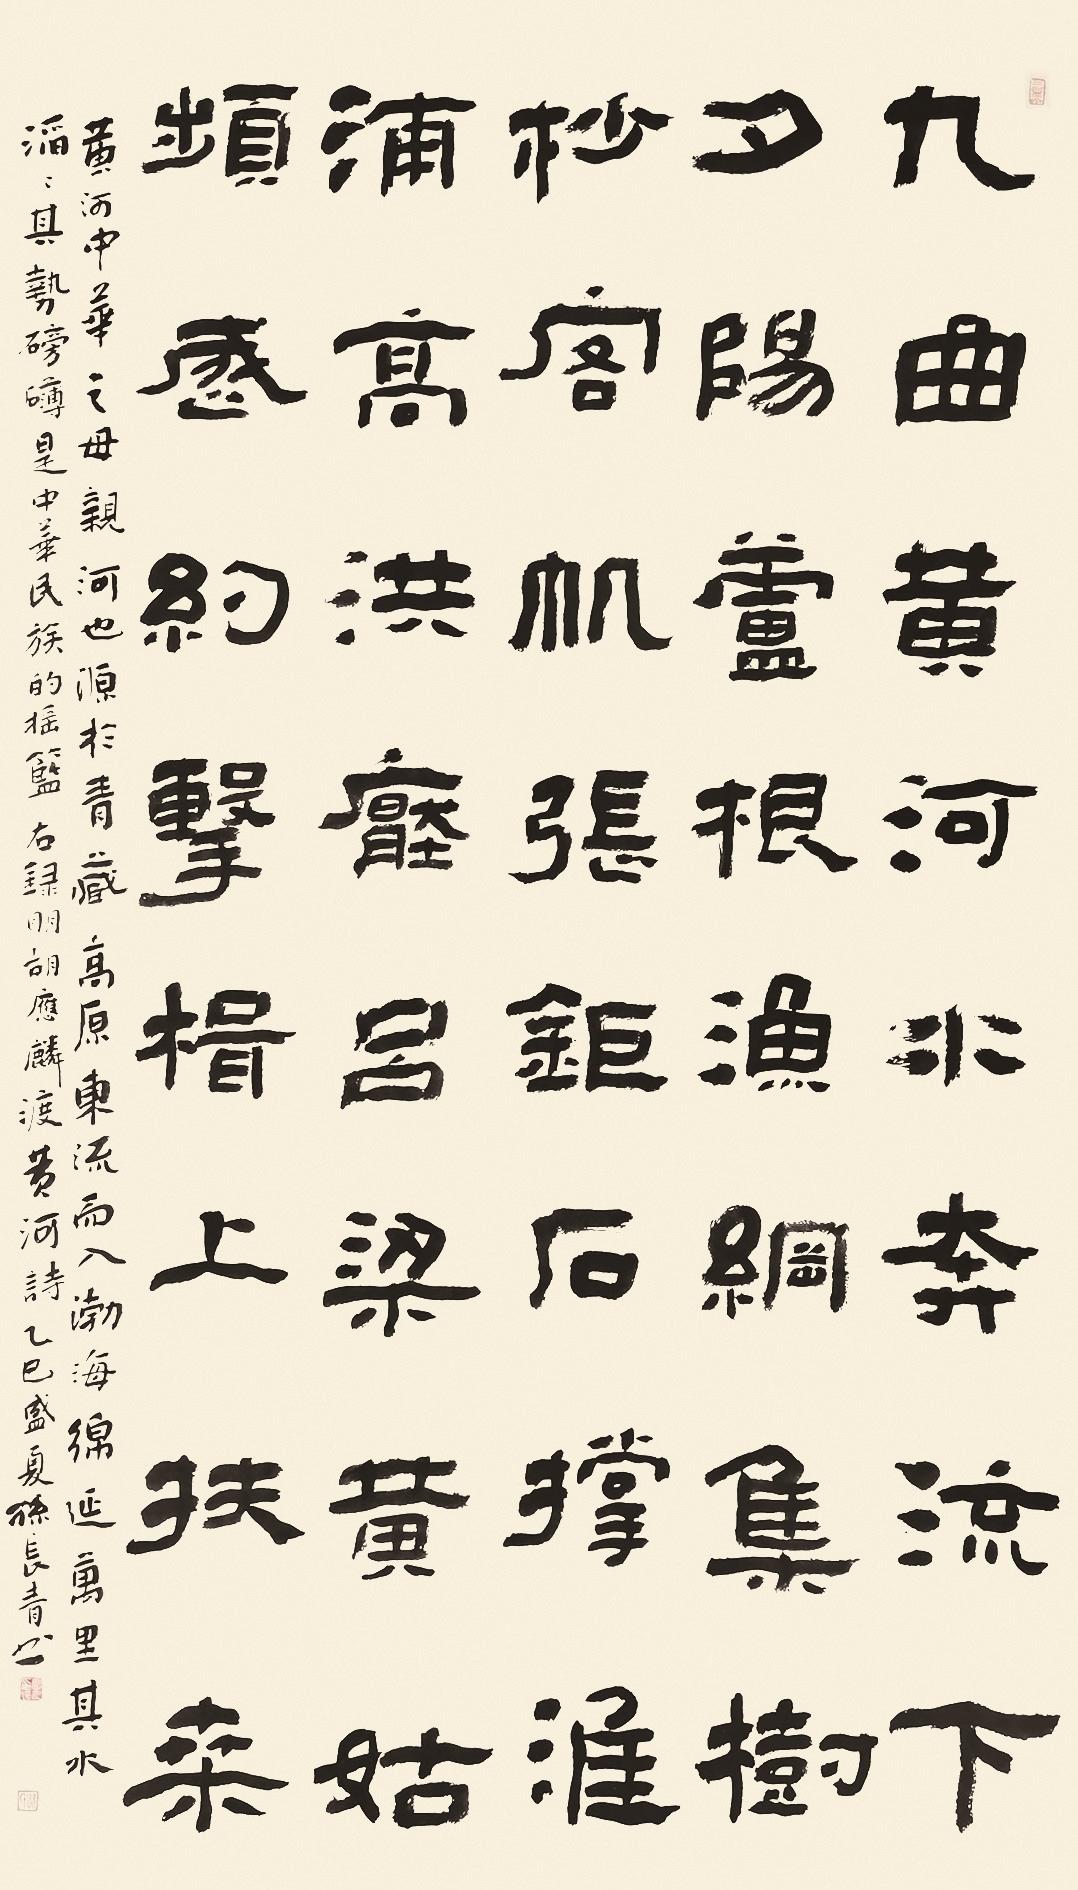 九曲黄河水奔流下
夕陽蘆根漁網集樹
杪客帆張鉅石撐淮
浦高洪壓吕梁黄姑
頻感約擊楫上扶桒
黄河中華之母親河也源於青藏高原東流而入渤海綿延萬里其水
滔〻其勢磅礴是中華民族的摇籃 右録明胡應麟渡黄河詩乙巳盛夏孫長青书